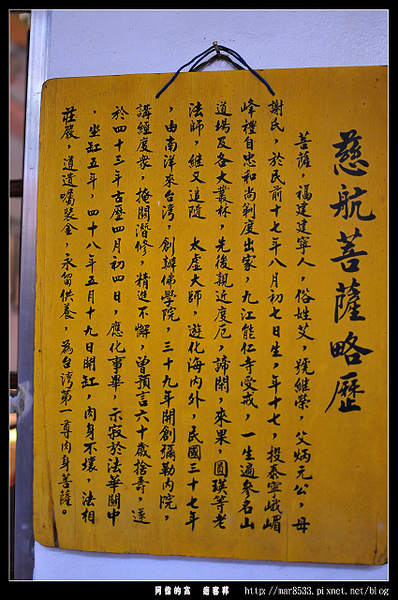 慈航菩薩略歷
菩薩，福建建寧人，俗姓艾，號繼榮，父炳元公，母
謝氏，於民前十七年八月初七日生，年十七，投泰寧峨嵋
峰禮自忠和尚剃度出家，九江能仁寺受戒，一生遍參名山
道場及各大叢林，先後親近度厄，諦閑，來果，圓瑛等老
法師，繼又追隨　太虛大師，遊化海內外，民國三十七年
，由南洋來台灣，創辦佛學院，三十九年開創彌勒內院，
講經度眾，掩關潛修，精進不懈，曾預言六十歲捨壽，遂
於四十三年古歷四月初四日，應化事畢，示寂於法華關中
，坐缸五年，四十八年五月十九日開缸，肉身不壞，法相
莊嚴，遵遺囑裝金，永留供養，為台灣第一尊肉身菩薩。
阿偉的窩　痞客邦　http://mar8533.pixnet.net/blog